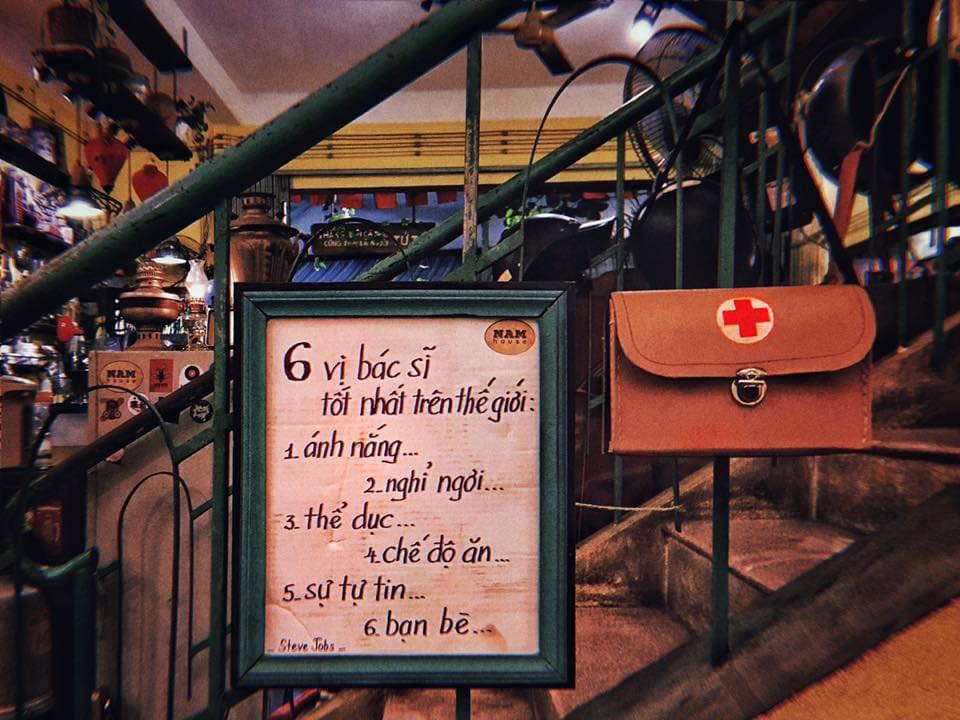 NAM
house
6 vị bác sĩ
tốt nhất trên thế giới:
1. ánh nắng...
2. nghỉ ngơi...
3. thể dục...
4. chế độ ăn...
5. sự tự tin...
6. bạn bè...
... Steve Jobs ...
NAM
house